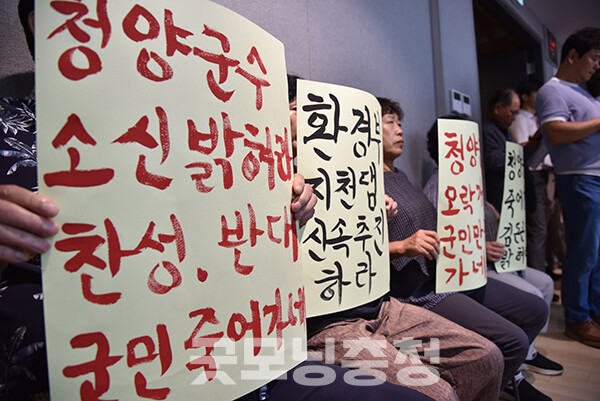 청양군수
소신밝혀라
찬성. 반대
군민죽어가네
환경부
지천댐
신속추진
하라
청양
오락가
군민만
가네
청양
죽어
굿모닝충청